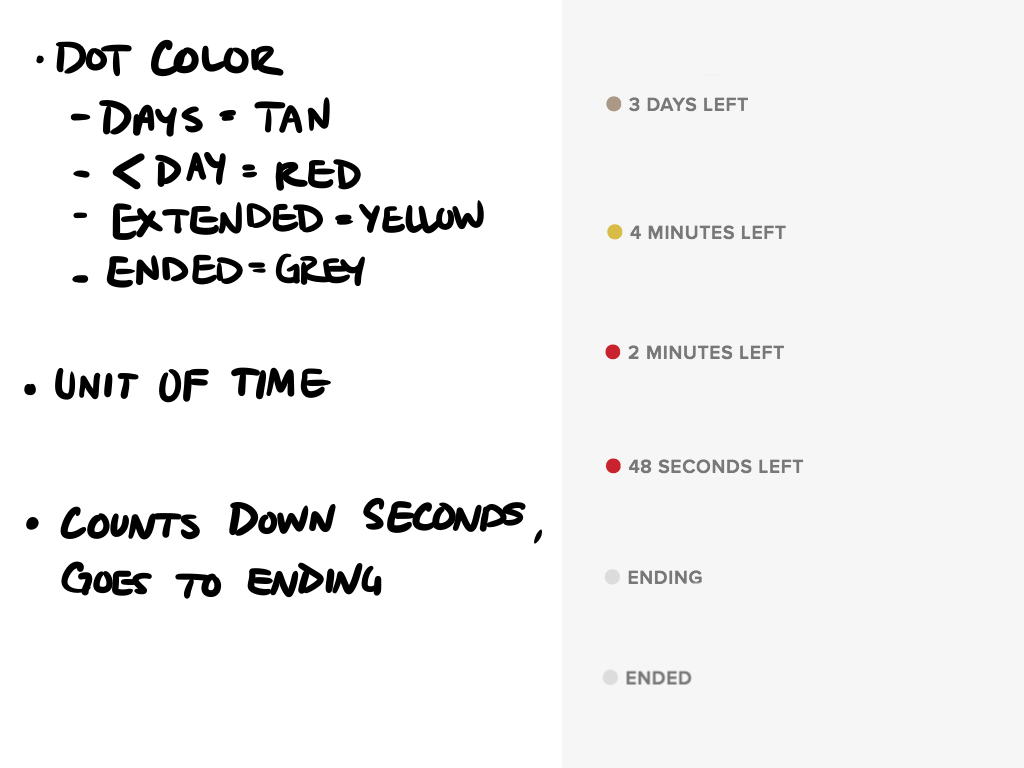 • DOT COLOR
- DAYS = TAN
- < DAY = RED
- EXTENDED = YELLOW
- ENDED = GREY
• UNIT OF TIME
• COUNTS DOWN SECONDS,
GOES TO ENDING
3 DAYS LEFT
4 MINUTES LEFT
2 MINUTES LEFT
48 SECONDS LEFT
ENDING
ENDED